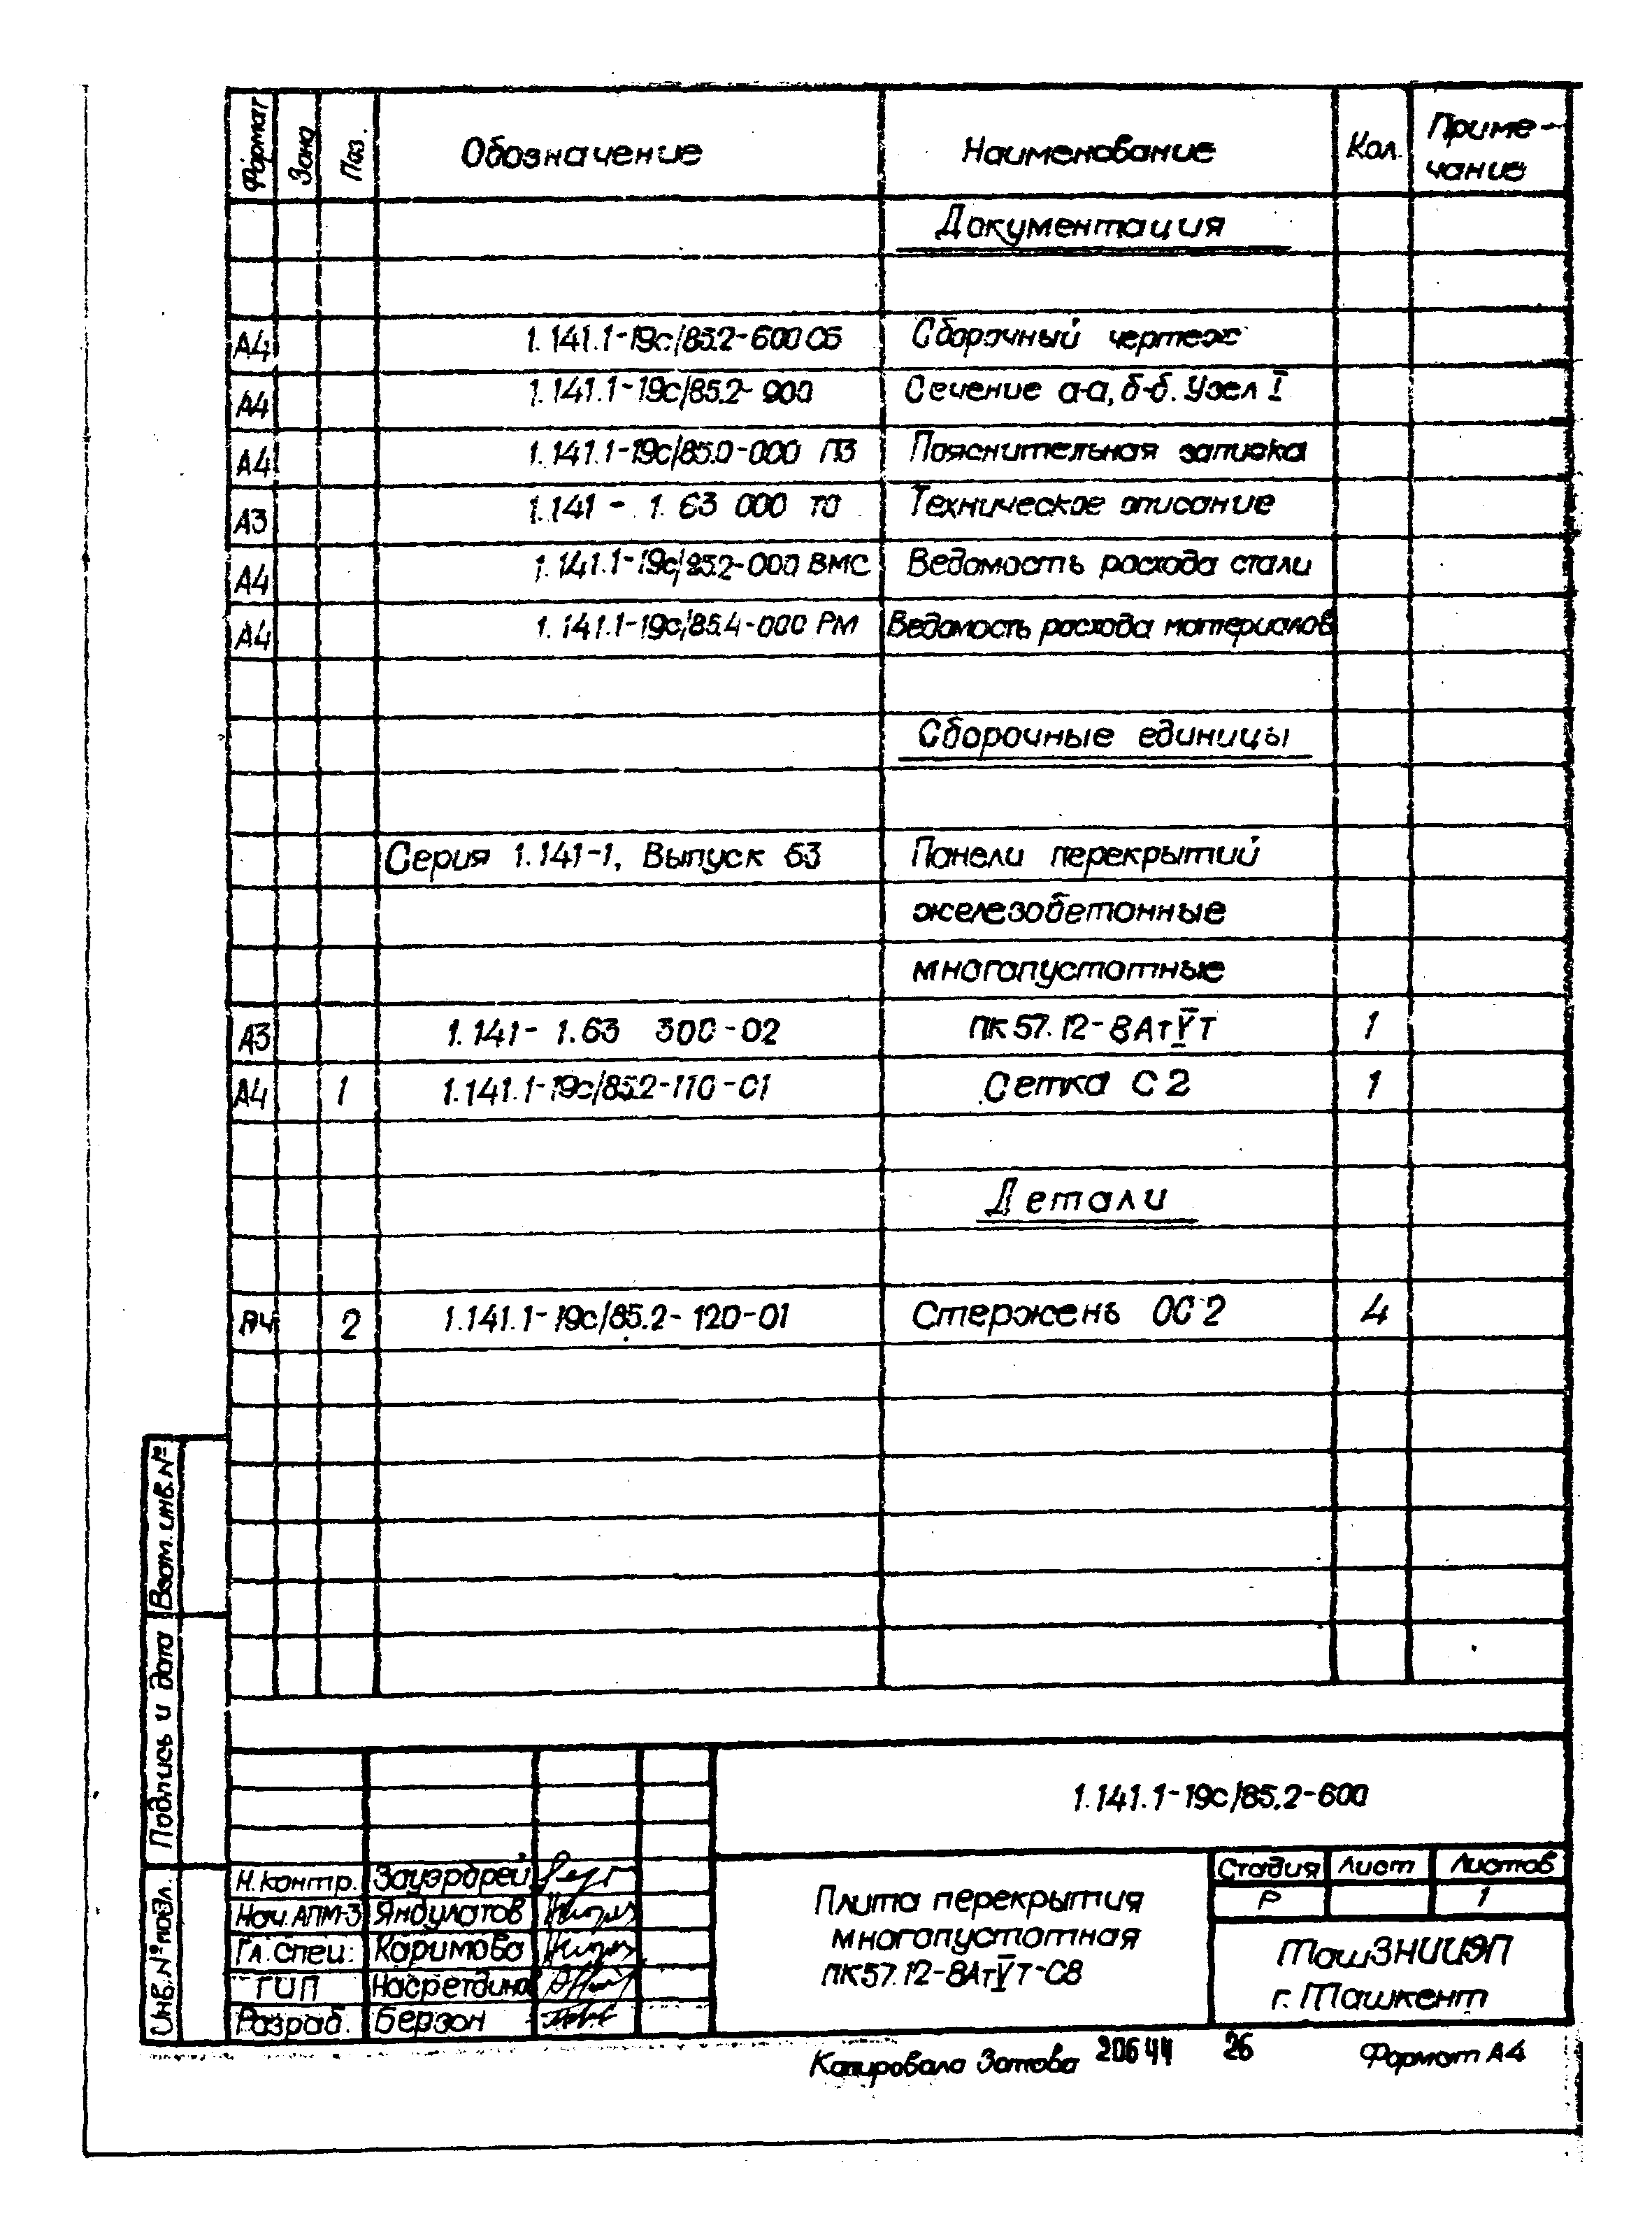 Формат Зона Поз. Обозначение Наименование Кол. Приме-
чание
Документация
А4 1.141.1-19с/85.2-600 СБ Сборочный чертеж
А4 1.141.1-19с/85.2-900 Сечение а-а, б-б. Узел I
А4 1.141.1-19с/85.0-000 ПЗ Пояснительная записка
А3 1.141 - 1.63 000 ТО Техническое описание
А4 1.141.1-19с/85.2-000 ВМС Ведомость расхода стали
А4 1.141.1-19с/85.4-000 РМ Ведомость расхода материалов
Сборочные единицы
Серия 1.141-1, Выпуск 63 Панели перекрытий
железобетонные
многопустотные
А3 1.141- 1.63 300-02 ПК 57.12-8АтVТ 1
А4 1 1.141.1-19с/85.2-110-01 Сетка С2 1
Детали
А4 2 1.141.1-19с/85.2-120-01 Стержень ОС2 4
Взам. инв. №
Подпись и дата
Инв. № подл.
1.141.1-19с/85.2-600
Н. контр. Зауэрбрей
Нач. АПМ-3 Яндулатов
Гл. спец. Каримова
ГИП Насретдинов
Разраб. Берзон
Плита перекрытия
многопустотная
ПК57.12-8АтVТ-С8
Стадия Лист Листов
Р 1
ТашЗНИИЭП
г. Ташкент
Копировала Зотова 20644 26 Формат А4